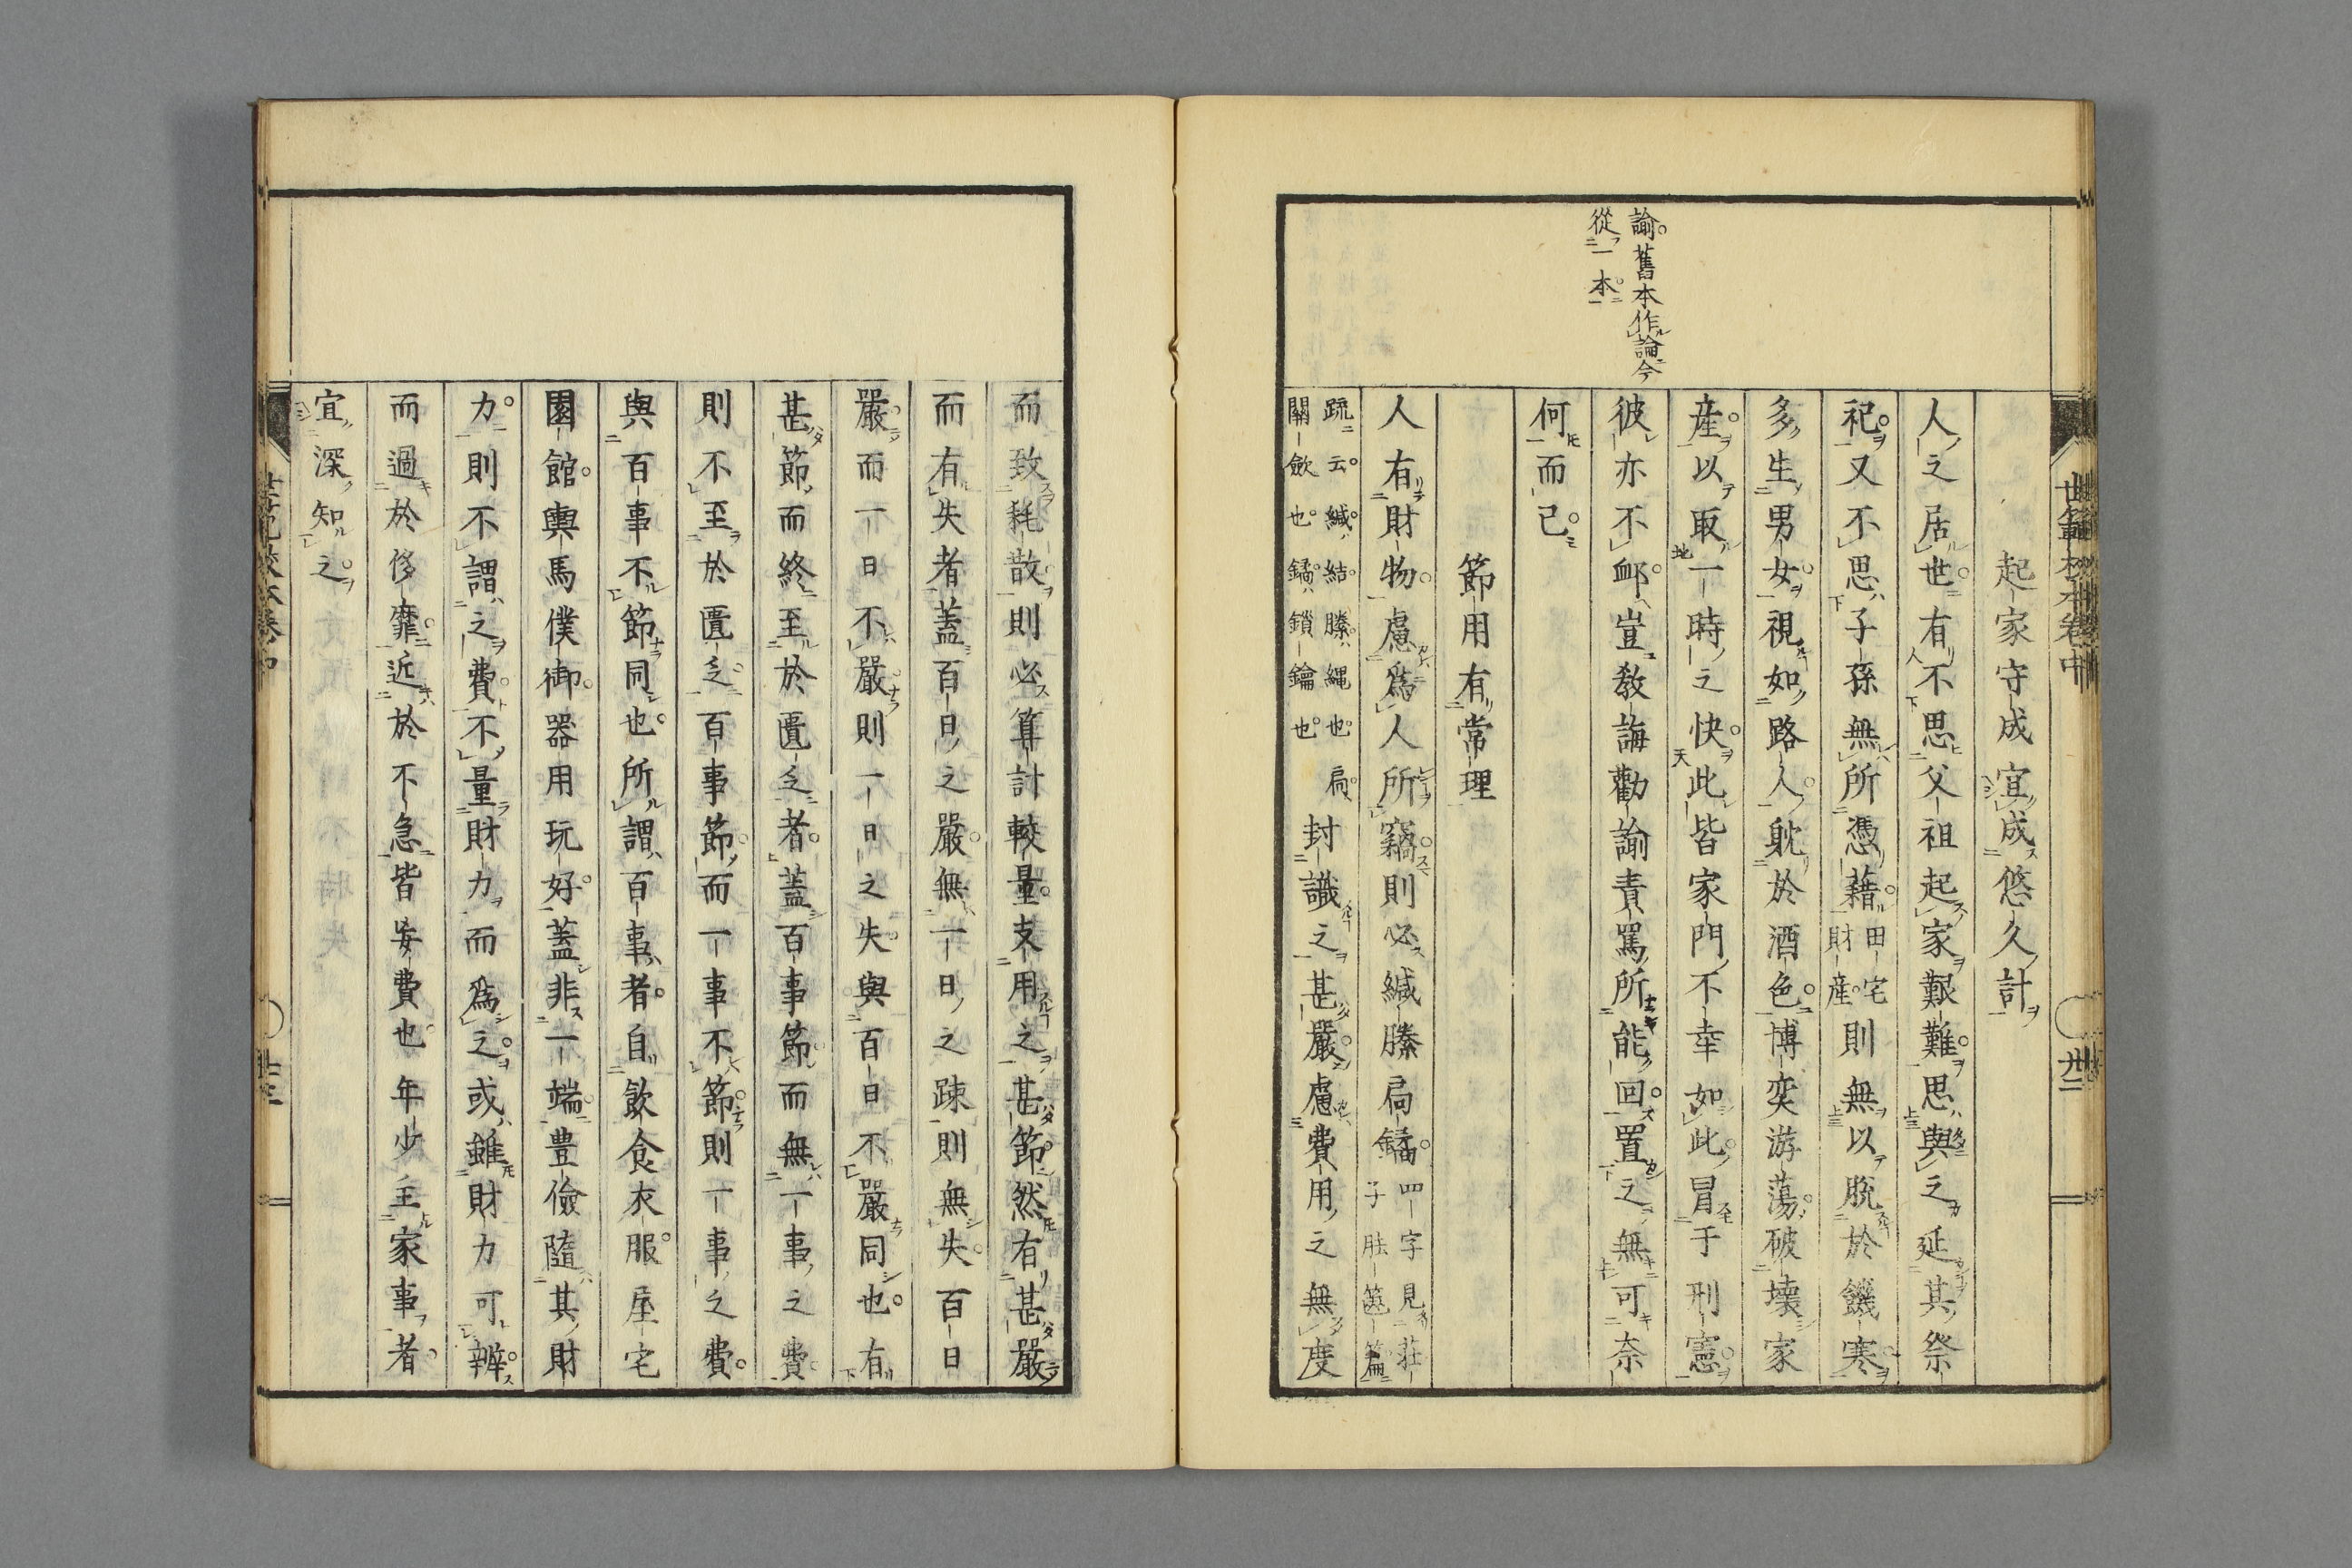 諭舊本作論今
從一本
世範校本卷中
卅二
起家守成宜成悠久計
人之居世有不思父祖起家艱難思與之延其祭
祀又不思子孫無所憑藉田宅財産則無以脫於饑寒
多生男女視如路人躭於酒色博奕游蕩破壞家
産以取一時之快此皆家門不幸如此冒于刑憲
彼亦不䘏豈敎誨勸諭責罵所能回置之無可奈
何而已
節用有常理
人有財物慮爲人所竊則必緘縢扃鐍四字見莊子胠篋篇
疏云緘結縢繩也扃關歛也鐍鎖鑰也封識之甚嚴慮費用之無度
而致耗散則必算計較量支用之甚節然有甚嚴
而有失者蓋百日之嚴無一日之疎則無失百日
嚴而一日不嚴則一日之失與百日不嚴同也有
甚節而終至於匱乏者蓋百事節而無一事之費
則不至於匱乏百事節而一事不節則一事之費
與百事不節同也所謂百事者自飲食衣服屋宅
園館輿馬僕御器用玩好蓋非一端豊儉隨其財
力則不謂之費不量財力而爲之或雖財力可辨
而過於侈靡近於不急皆妄費也年少主家事者
宜深知之